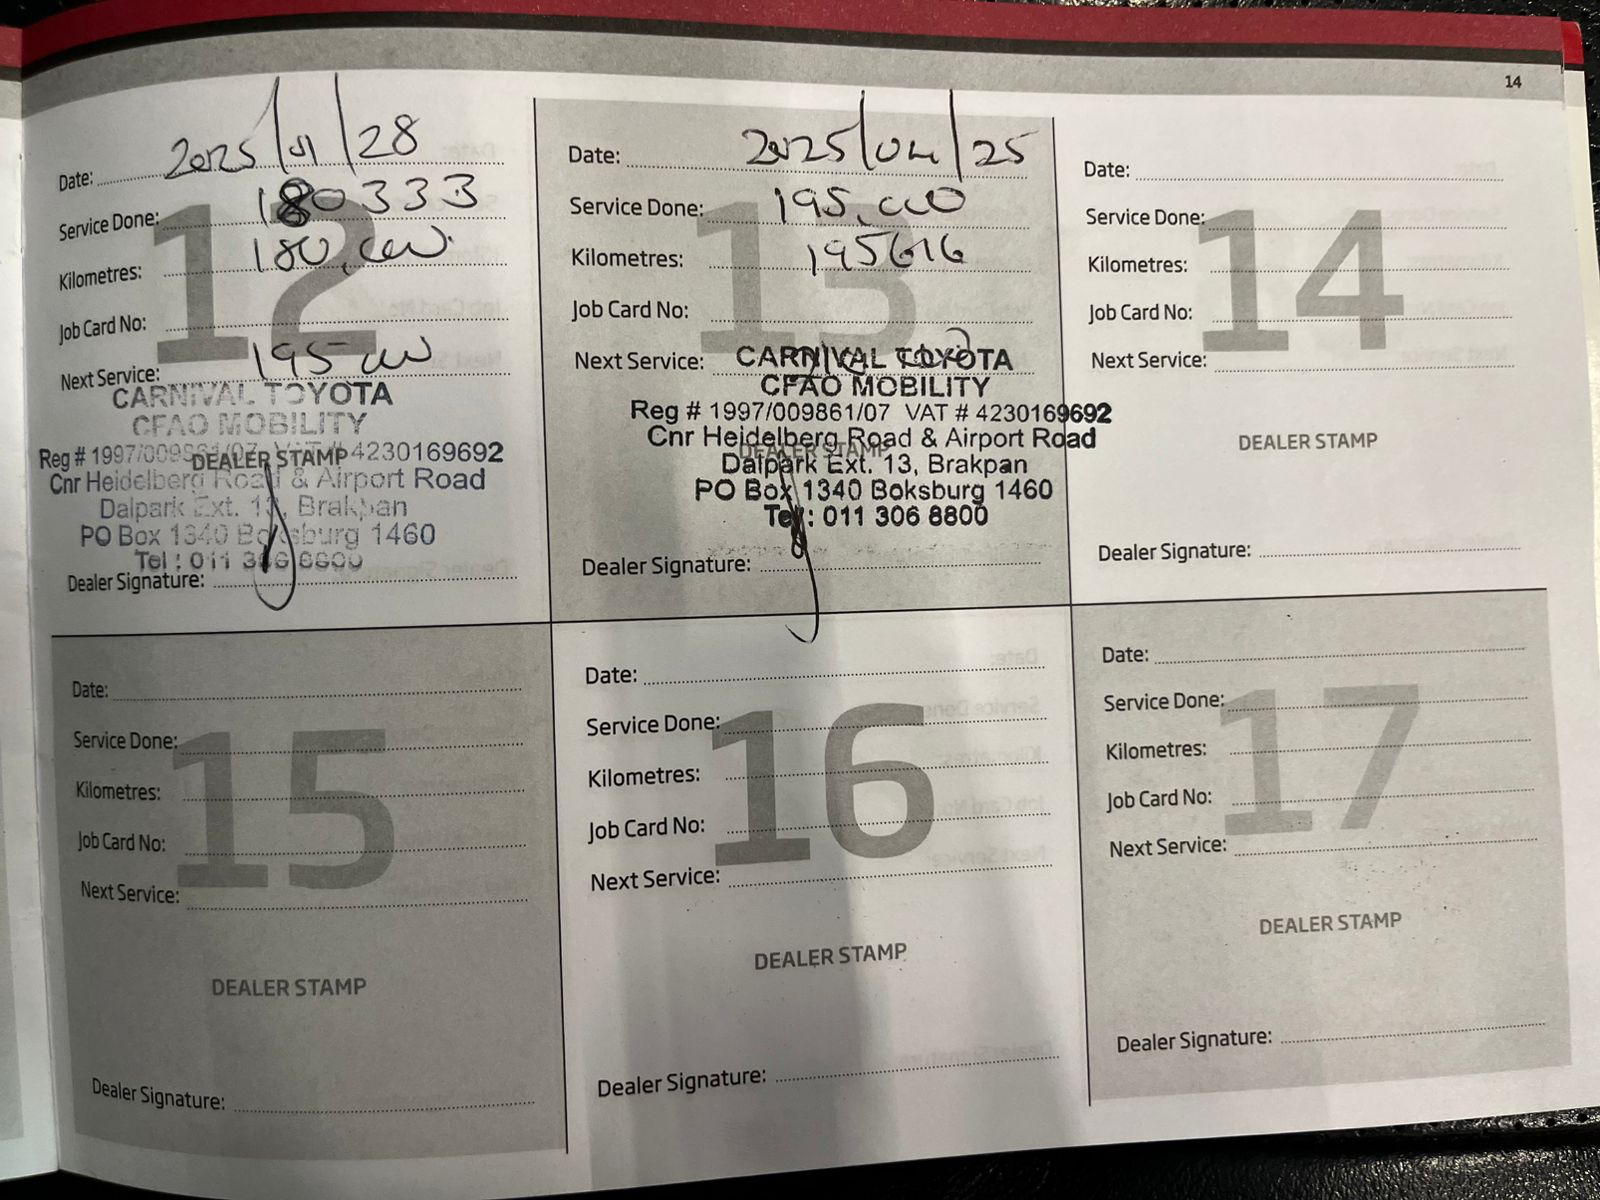 14
Date: 2025/01/28
Service Done: 180333
Kilometres: 180,000
Job Card No:
Next Service: 195000
CARNIVAL TOYOTA
CFAO MOBILITY
Reg # 1997/009861/07 VAT # 4230169692
DEALER STAMP
Cnr Heidelberg Road & Airport Road
Dalpark Ext. 13, Brakpan
PO Box 1340 Boksburg 1460
Tel : 011 306 8800
Dealer Signature:
12
Date: 2025/04/25
Service Done: 195,000
Kilometres: 195616
Job Card No:
Next Service:
CARNIVAL TOYOTA
CFAO MOBILITY
Reg # 1997/009861/07 VAT # 4230169692
Cnr Heidelberg Road & Airport Road
DEALER STAMP
Dalpark Ext. 13, Brakpan
PO Box 1340 Boksburg 1460
Tel : 011 306 8800
Dealer Signature:
13
Date:
Service Done:
Kilometres:
Job Card No:
Next Service:
14
DEALER STAMP
Dealer Signature:
Date:
Service Done:
Kilometres:
Job Card No:
Next Service:
15
DEALER STAMP
Dealer Signature:
Date:
Service Done:
Kilometres:
Job Card No:
Next Service:
16
DEALER STAMP
Dealer Signature:
Date:
Service Done:
Kilometres:
Job Card No:
Next Service:
17
DEALER STAMP
Dealer Signature: